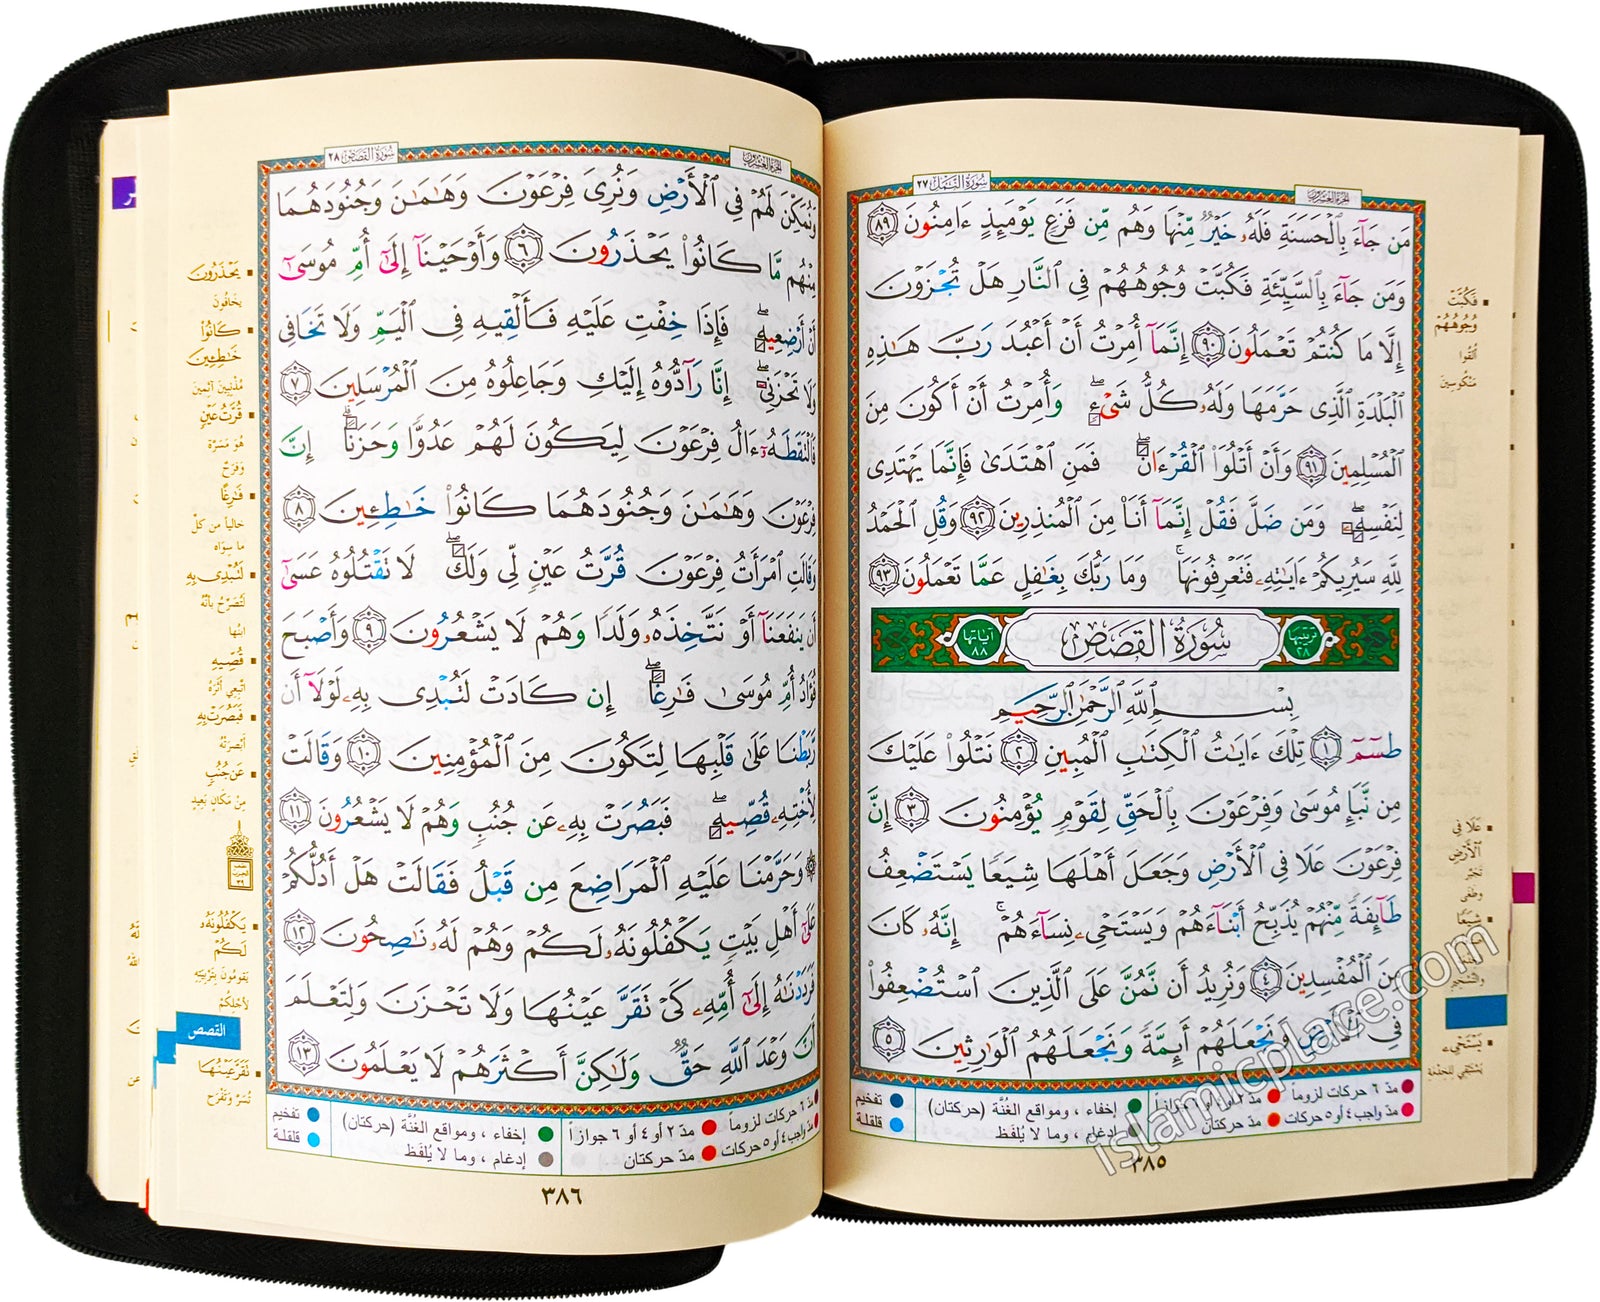 سُورَةُ النَّمْل ٢٧
الجُزءُ العِشْرُون
مَن جَآءَ بِٱلْحَسَنَةِ فَلَهُۥ خَيْرٌ مِّنْهَا وَهُم مِّن فَزَعٍ يَوْمَئِذٍ ءَامِنُونَ ٨٩
وَمَن جَآءَ بِٱلسَّيِّئَةِ فَكُبَّتْ وُجُوهُهُمْ فِى ٱلنَّارِ هَلْ تُجْزَوْنَ
إِلَّا مَا كُنتُمْ تَعْمَلُونَ ٩٠ إِنَّمَآ أُمِرْتُ أَنْ أَعْبُدَ رَبَّ هَـٰذِهِ
ٱلْبَلْدَةِ ٱلَّذِى حَرَّمَهَا وَلَهُۥ كُلُّ شَىْءٍ ۖ وَأُمِرْتُ أَنْ أَكُونَ مِنَ
ٱلْمُسْلِمِينَ ٩١ وَأَنْ أَتْلُوَا۟ ٱلْقُرْءَانَ ۖ فَمَنِ ٱهْتَدَىٰ فَإِنَّمَا يَهْتَدِى
لِنَفْسِهِۦ ۖ وَمَن ضَلَّ فَقُلْ إِنَّمَآ أَنَا۠ مِنَ ٱلْمُنذِرِينَ ٩٢ وَقُلِ ٱلْحَمْدُ
لِلَّهِ سَيُرِيكُمْ ءَايَـٰتِهِۦ فَتَعْرِفُونَهَا ۚ وَمَا رَبُّكَ بِغَـٰفِلٍ عَمَّا تَعْمَلُونَ ٩٣
ترتيبها ٢٨ سُورَةُ القَصَصِ آياتها ٨٨
بِسْمِ ٱللَّهِ ٱلرَّحْمَـٰنِ ٱلرَّحِيمِ
طسٓمٓ ١ تِلْكَ ءَايَـٰتُ ٱلْكِتَـٰبِ ٱلْمُبِينِ ٢ نَتْلُوا۟ عَلَيْكَ
مِن نَّبَإِ مُوسَىٰ وَفِرْعَوْنَ بِٱلْحَقِّ لِقَوْمٍ يُؤْمِنُونَ ٣ إِنَّ
فِرْعَوْنَ عَلَا فِى ٱلْأَرْضِ وَجَعَلَ أَهْلَهَا شِيَعًا يَسْتَضْعِفُ
طَآئِفَةً مِّنْهُمْ يُذَبِّحُ أَبْنَآءَهُمْ وَيَسْتَحْىِۦ نِسَآءَهُمْ ۚ إِنَّهُۥ كَانَ
مِنَ ٱلْمُفْسِدِينَ ٤ وَنُرِيدُ أَن نَّمُنَّ عَلَى ٱلَّذِينَ ٱسْتُضْعِفُوا۟
فِى ٱلْأَرْضِ وَنَجْعَلَهُمْ أَئِمَّةً وَنَجْعَلَهُمُ ٱلْوَٰرِثِينَ ٥
فَكُبَّتْ
وُجُوهُهُمْ
أُلْقُوا
مَنْكُوسِينَ
عَلَا فِى
ٱلْأَرْضِ
تَجَبَّرَ
وَطَغَى
شِيَعًا
يَسْتَحْىِۦ
يَسْتَبْقِي للخِدْمَة
مدّ ٦ حركات لزوماً
إخفاء ، ومواقع الغُنَّة (حركتان)
تفخيم
مدّ واجب ٤ أو ٥ حركات
مدّ حركتان
إدغام ، وما لا يُلفَظ
قلقلة
٣٨٥
islamicplace.com
سُورَةُ القَصَص ٢٨
الجُزءُ العِشْرُون
وَنُمَكِّنَ لَهُمْ فِى ٱلْأَرْضِ وَنُرِىَ فِرْعَوْنَ وَهَـٰمَـٰنَ وَجُنُودَهُمَا
مِنْهُم مَّا كَانُوا۟ يَحْذَرُونَ ٦ وَأَوْحَيْنَآ إِلَىٰٓ أُمِّ مُوسَىٰٓ
أَنْ أَرْضِعِيهِ ۖ فَإِذَا خِفْتِ عَلَيْهِ فَأَلْقِيهِ فِى ٱلْيَمِّ وَلَا تَخَافِى
وَلَا تَحْزَنِىٓ ۖ إِنَّا رَآدُّوهُ إِلَيْكِ وَجَاعِلُوهُ مِنَ ٱلْمُرْسَلِينَ ٧
فَٱلْتَقَطَهُۥٓ ءَالُ فِرْعَوْنَ لِيَكُونَ لَهُمْ عَدُوًّا وَحَزَنًا ۗ إِنَّ
فِرْعَوْنَ وَهَـٰمَـٰنَ وَجُنُودَهُمَا كَانُوا۟ خَـٰطِـِٔينَ ٨
وَقَالَتِ ٱمْرَأَتُ فِرْعَوْنَ قُرَّتُ عَيْنٍ لِّى وَلَكَ ۖ لَا تَقْتُلُوهُ عَسَىٰٓ
أَن يَنفَعَنَآ أَوْ نَتَّخِذَهُۥ وَلَدًا وَهُمْ لَا يَشْعُرُونَ ٩ وَأَصْبَحَ
فُؤَادُ أُمِّ مُوسَىٰ فَـٰرِغًا ۖ إِن كَادَتْ لَتُبْدِى بِهِۦ لَوْلَآ أَن
رَّبَطْنَا عَلَىٰ قَلْبِهَا لِتَكُونَ مِنَ ٱلْمُؤْمِنِينَ ١٠ وَقَالَتْ
لِأُخْتِهِۦ قُصِّيهِ ۖ فَبَصُرَتْ بِهِۦ عَن جُنُبٍ وَهُمْ لَا يَشْعُرُونَ ١١
۞ وَحَرَّمْنَا عَلَيْهِ ٱلْمَرَاضِعَ مِن قَبْلُ فَقَالَتْ هَلْ أَدُلُّكُمْ
عَلَىٰٓ أَهْلِ بَيْتٍ يَكْفُلُونَهُۥ لَكُمْ وَهُمْ لَهُۥ نَـٰصِحُونَ ١٢
فَرَدَدْنَـٰهُ إِلَىٰٓ أُمِّهِۦ كَىْ تَقَرَّ عَيْنُهَا وَلَا تَحْزَنَ وَلِتَعْلَمَ
أَنَّ وَعْدَ ٱللَّهِ حَقٌّ وَلَـٰكِنَّ أَكْثَرَهُمْ لَا يَعْلَمُونَ ١٣
يَحْذَرُونَ
يخافُونَ
كَانُوا۟
خَـٰطِـِٔينَ
مُذْنِبِينَ آثِمِينَ
قُرَّتُ عَيْنٍ
هُوَ مَسَرَّة
وَفَرَح
فَـٰرِغًا
خَالياً من كلّ
ما سِوَاه
لَتُبْدِى بِهِۦ
لَتُصَرِّحُ بأنَّهُ
ابنُها
قُصِّيهِ
اتَّبِعِي أثَرَهُ
فَبَصُرَتْ بِهِۦ
أَبْصَرَتْهُ
عَن جُنُبٍ
مِنْ مَكَانٍ بَعِيدٍ
٣٩
يَكْفُلُونَهُۥ
لَكُمْ
يقومُونَ بِتَرْبِيَتِهِ
لأجْلِكُمْ
القصص
تَقَرَّ عَيْنُهَا
تُسَرَّ وَتَفْرَح
مدّ ٦ حركات لزوماً
مدّ ٢ أو ٤ أو ٦ جوازاً
إخفاء ، ومواقع الغُنَّة (حركتان)
تفخيم
مدّ واجب ٤ أو ٥ حركات
مدّ حركتان
إدغام ، وما لا يُلفَظ
قلقلة
٣٨٦